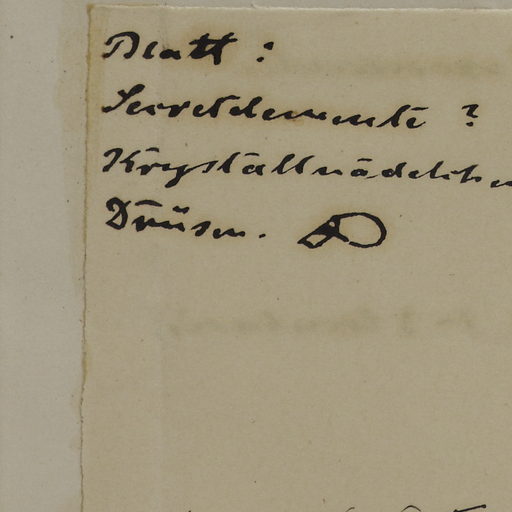 Blatt :
Secretelemente ?
Krystallnädelchen
Drüsen.